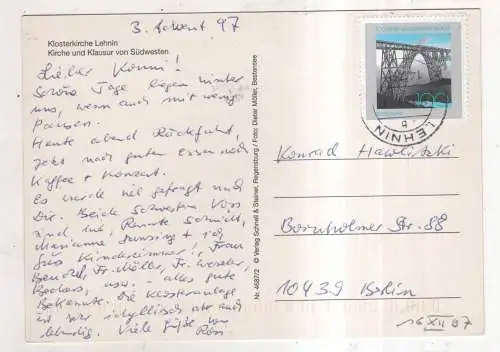 3. Advent 97
Klosterkirche Lehnin
Kirche und Klausur von Südwesten
Lieber Konni!
Schöne Tage liegen hinter
uns, wenn auch mit wenig
Pausen.
Heute abend Rückfahrt,
jetzt nach gutem Essen noch
Kaffee + Konzert.
Es wurde viel gefragt nach
Dir. Beide Schwestern Voss
sind hier, Renate Schmidt,
Marianne + ich,
fürs Kinderzimmer! Frau
Fr. Müller, Fr.
usw. - alles gute
Bekannte. Die Klosteranlage
ist sehr idyllisch aber auch
lebendig. Viele Grüße von
Rosi
Nr. 4687/2 © Verlag Schnell & Steiner, Regensburg / Foto: Dieter Möller, Bestensee
100
LEHNIN
Konrad Hawlitzki
Bornholmer Str. 88
10439 Berlin
16 XII 97